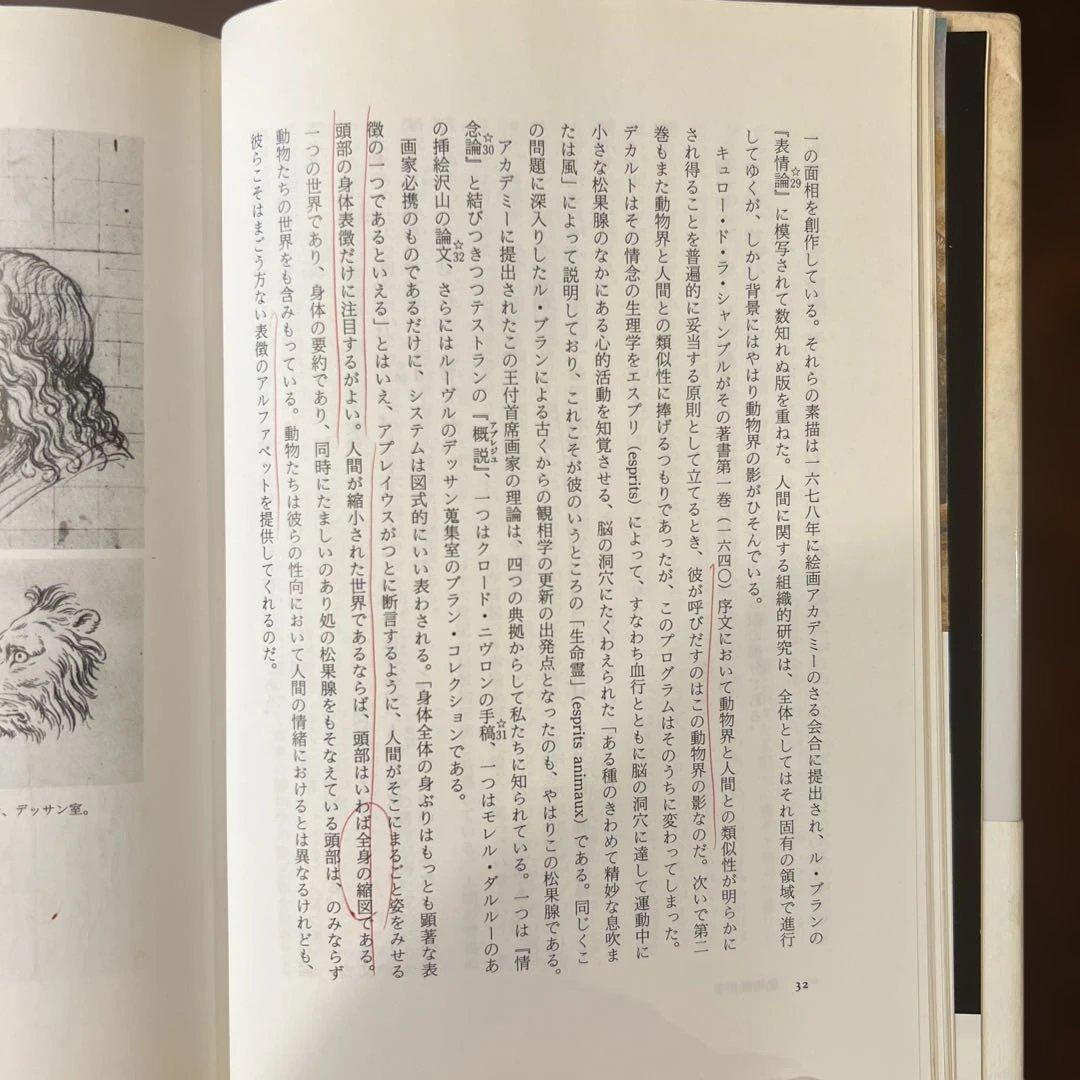 一の面相を創作している。それらの素描は一六七八年に絵画アカデミーのさる会合に提出され、ル・ブランの
『表情論』☆29に模写されて数知れぬ版を重ねた。人間に関する組織的研究は、全体としてはそれ固有の領域で進行
してゆくが、しかし背景にはやはり動物界の影がひそんでいる。
キュロー・ド・ラ・シャンブルがその著書第一巻（一六四〇）序文において動物界と人間との類似性が明らかに
され得ることを普遍的に妥当する原則として立てるとき、彼が呼びだすのはこの動物界の影なのだ。次いで第二
巻もまた動物界と人間との類似性に捧げるつもりであったが、このプログラムはそのうちに変わってしまった。
デカルトはその情念の生理学をエスプリ（esprits）によって、すなわち血行とともに脳の洞穴に達して運動中に
小さな松果腺のなかにある心的活動を知覚させる、脳の洞穴にたくわえられた「ある種のきわめて精妙な息吹ま
たは風」によって説明しており、これこそが彼のいうところの「生命霊」（esprits animaux）である。同じくこ
の問題に深入りしたル・ブランによる古くからの観相学の更新の出発点となったのも、やはりこの松果腺である。
アカデミーに提出されたこの王付首席画家の理論は、四つの典拠からして私たちに知られている。一つは『情
念論』☆30と結びつきつつテストランの『概説』アブレジュ、一つはクロード・ニヴロンの手稿☆31、一つはモレル・ダルルーのあ
の挿絵沢山の論文☆32、さらにはルーヴルのデッサン蒐集室のブラン・コレクションである。
画家必携のものであるだけに、システムは図式的にいい表わされる。「身体全体の身ぶりはもっとも顕著な表
徴の一つであるといえる」とはいえ、アプレイウスがつとに断言するように、人間がそこにまるごと姿をみせる
頭部の身体表徴だけに注目するがよい。人間が縮小された世界であるならば、頭部はいわば全身の縮図である。
一つの世界であり、身体の要約であり、同時にたましいのあり処の松果腺をもそなえている頭部は、のみならず
動物たちの世界をも含みもっている。動物たちは彼らの性向において人間の情緒におけるとは異なるけれども、
彼らこそはまごう方ない表徴のアルファベットを提供してくれるのだ。
32
、デッサン室。